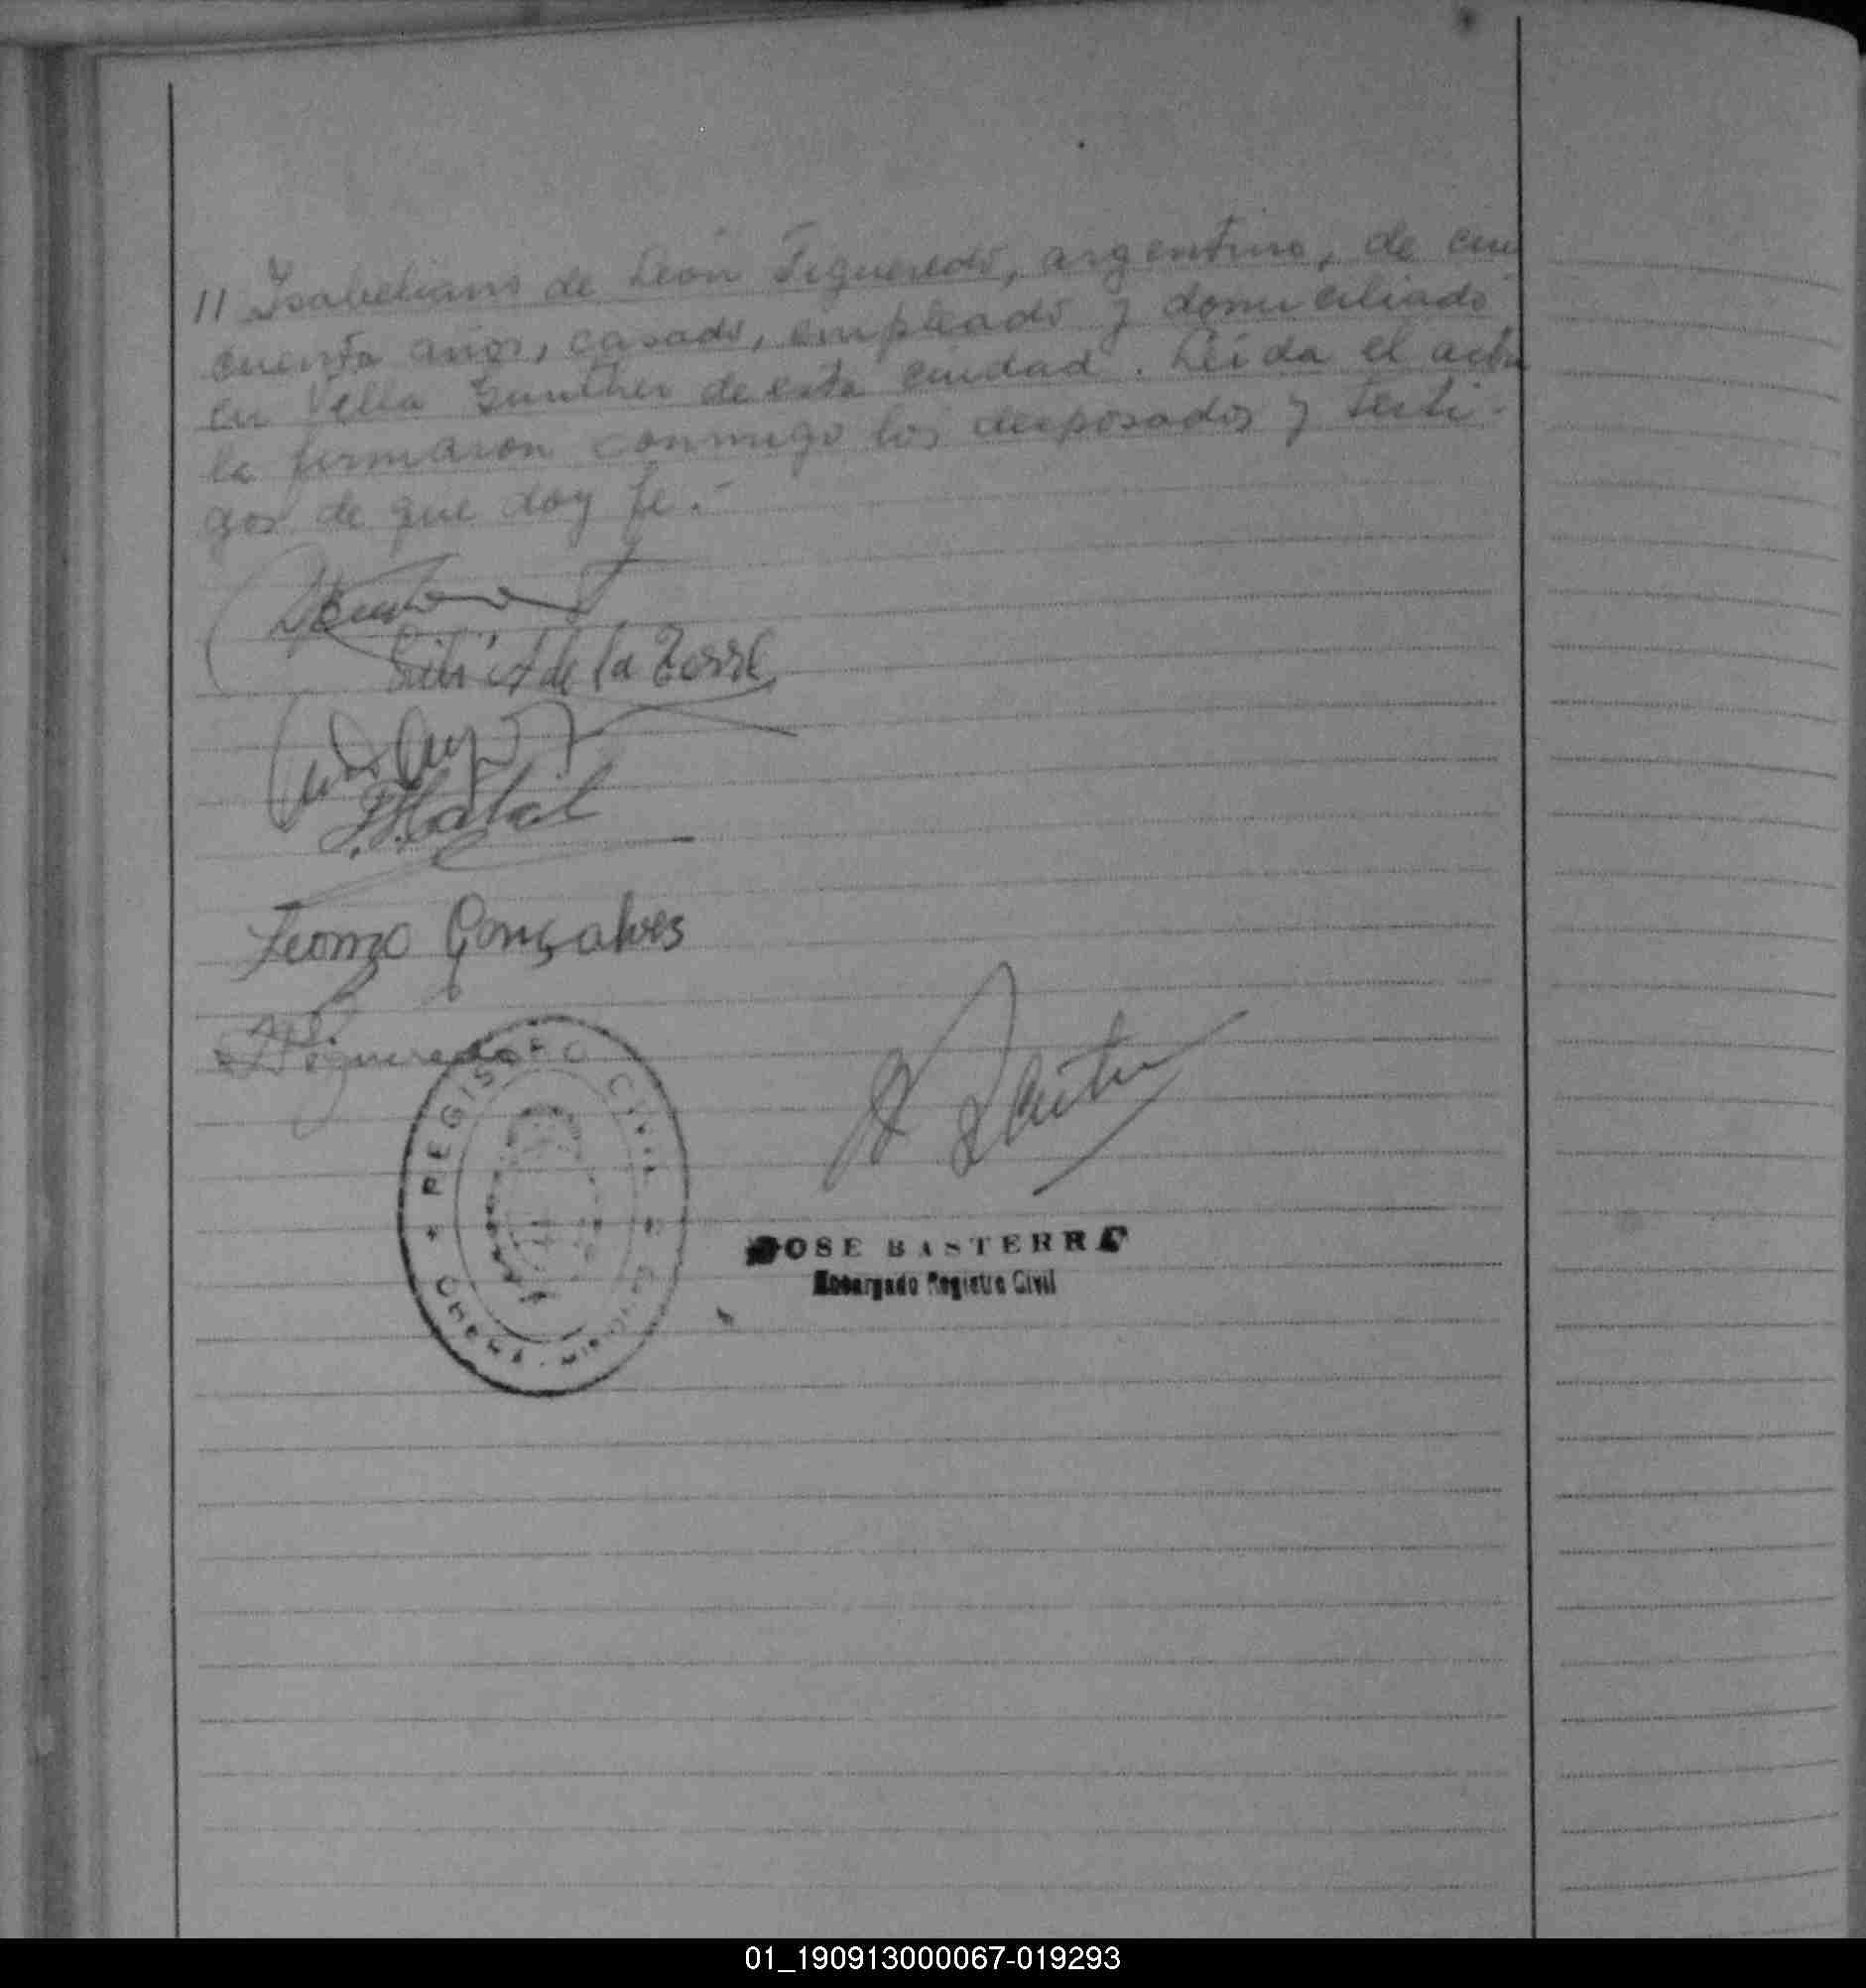 11 Isabeliano de León Figueredo, argentino, de cin
cuenta años, casado, empleado y domiciliado
en Villa Gunther de esta ciudad. Leída el acta
la firmaron conmigo los desposados y testi-
gos de que doy fe.-
de la Torre
Leonzo Gonçalves
Figueredo
REGISTRO CIVIL
OBERA - MISIONES
JOSE BASTERRA
Encargado Registro Civil
01_190913000067-019293